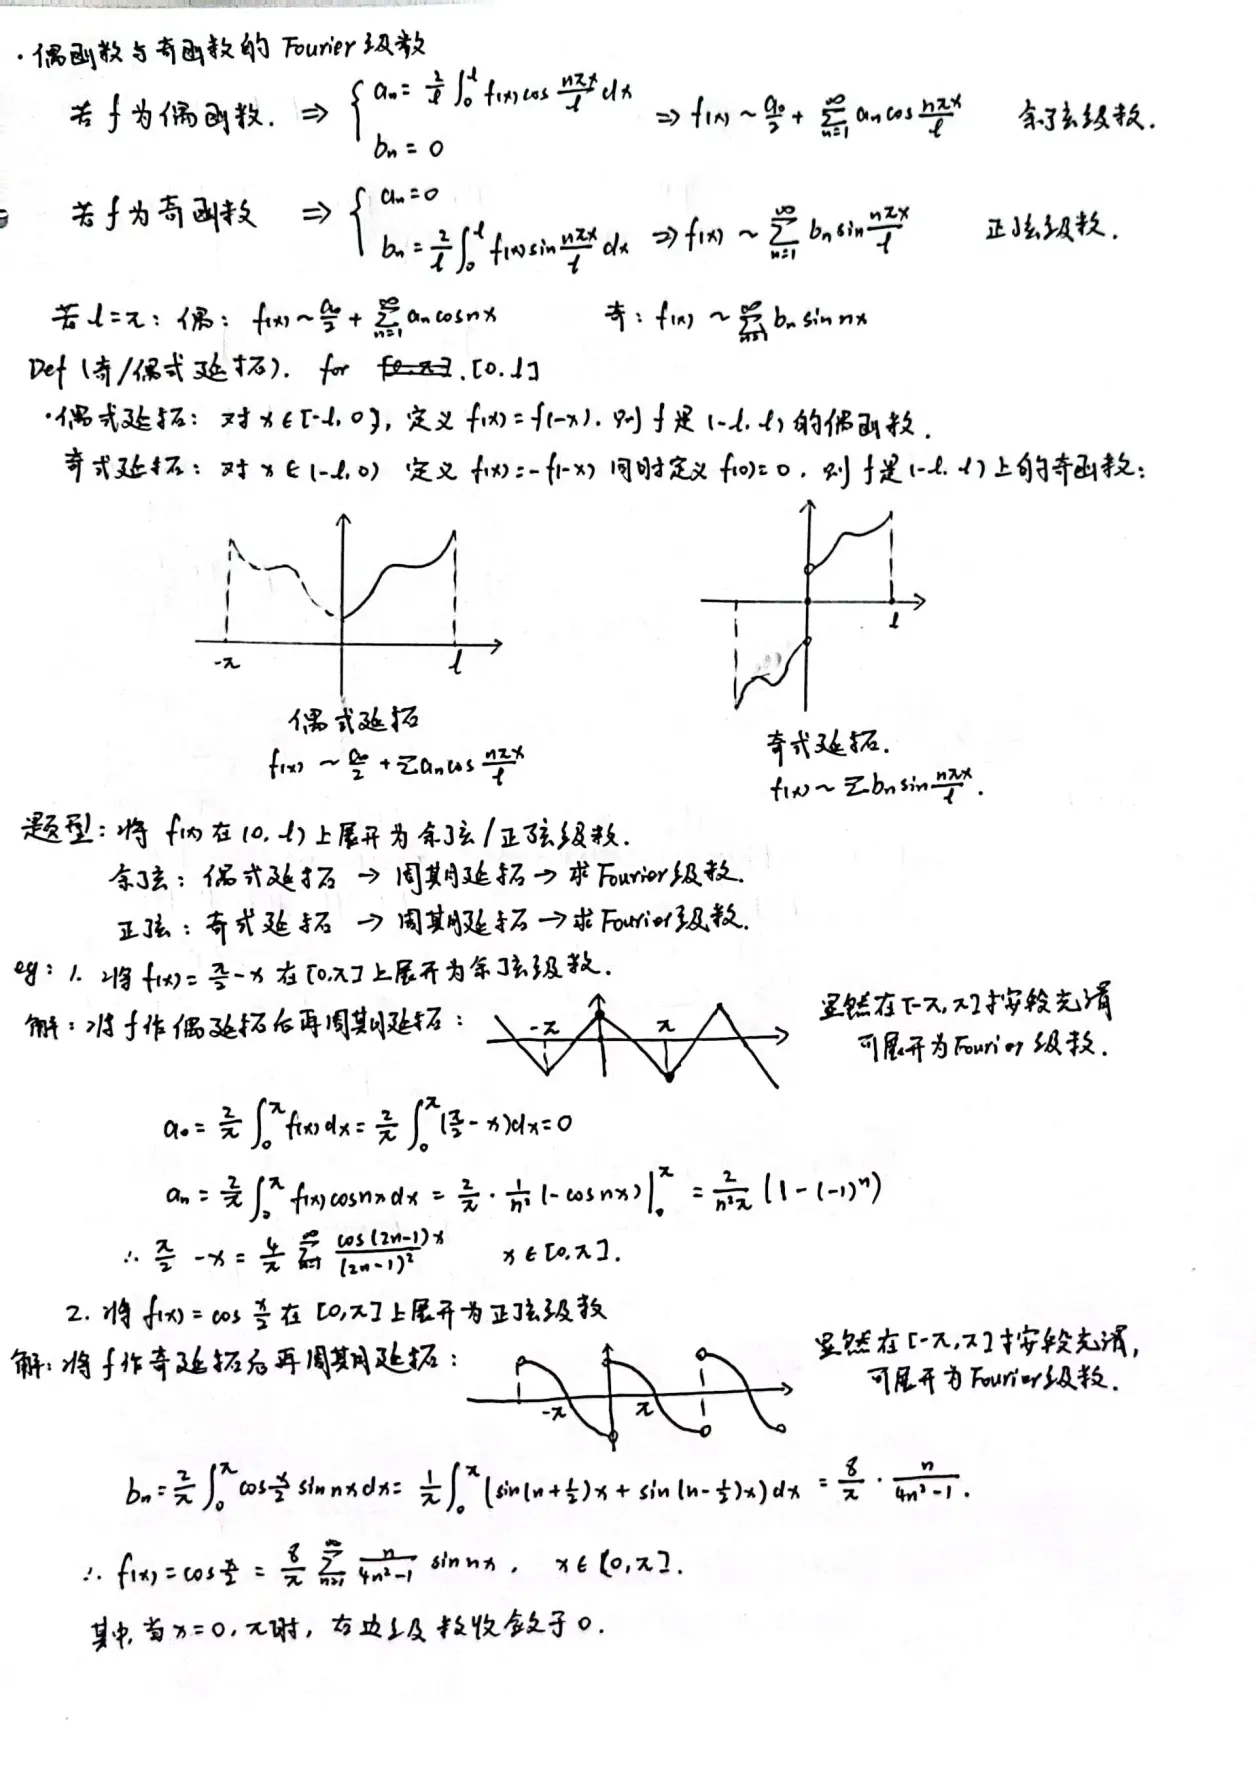 ·偶函数与奇函数的 Fourier级数
若 f 为偶函数. ⇒ { aₙ = 2/l ∫₀ˡ f(x) cos nπx/l dx
bₙ = 0
⇒ f(x) ~ a₀/2 + Σₙ₌₁^∞ aₙ cos nπx/l 余弦级数.
若 f 为奇函数 ⇒ { aₙ = 0
bₙ = 2/l ∫₀ˡ f(x) sin nπx/l dx ⇒ f(x) ~ Σₙ₌₁^∞ bₙ sin nπx/l 正弦级数.
若 l=π: 偶: f(x) ~ a₀/2 + Σₙ₌₁^∞ aₙ cosnx 奇: f(x) ~ Σₙ₌₁^∞ bₙ sin nx
Def (奇/偶式延拓). for [0,π]. [0.l]
·偶式延拓: 对 x∈[-l,0], 定义 f(x) = f(-x). 则 f 是 (-l. l) 的偶函数.
奇式延拓: 对 x∈(-l,0) 定义 f(x) = -f(-x) 同时定义 f(0)=0. 则 f 是 (-l. l) 上的奇函数:
-π
l
l
偶式延拓
f(x) ~ a₀/2 + Σaₙcos nπx/l
奇式延拓.
f(x) ~ Σbₙsin nπx/l.
题型: 将 f(x) 在 (0, l) 上展开为余弦/正弦级数.
余弦: 偶式延拓 → 周期延拓 → 求Fourier级数.
正弦: 奇式延拓 → 周期延拓 → 求Fourier级数.
eg: 1. 将 f(x) = π/2 - x 在 [0,π] 上展开为余弦级数.
解: 将 f 作偶延拓后再周期延拓:
-π
π
显然在 [-π, π] 才按较光滑
可展开为Fourier 级数.
a₀ = 2/π ∫₀^π f(x) dx = 2/π ∫₀^π (π/2 - x)dx = 0
aₙ = 2/π ∫₀^π f(x) cosnx dx = 2/π · 1/n² (-cosnx)|₀^π = 2/n²π (1-(-1)ⁿ)
∴ π/2 - x = 4/π Σₙ₌₁^∞ cos(2n-1)x/(2n-1)² x∈[0,π].
2. 将 f(x) = cos x/2 在 [0,π] 上展开为正弦级数
解: 将 f 作奇延拓后再周期延拓:
-π
π
显然在 [-π, π] 才按较光滑,
可展开为Fourier级数.
bₙ = 2/π ∫₀^π cos x/2 sin nx dx = 1/π ∫₀^π (sin(n+1/2)x + sin(n-1/2)x) dx = 8/π · n/4n²-1.
∴ f(x) = cos x/2 = 8/π Σₙ₌₁^∞ n/4n²-1 sin nx, x∈[0,π].
其中, 当 x=0, π时, 右边级数收敛于 0.